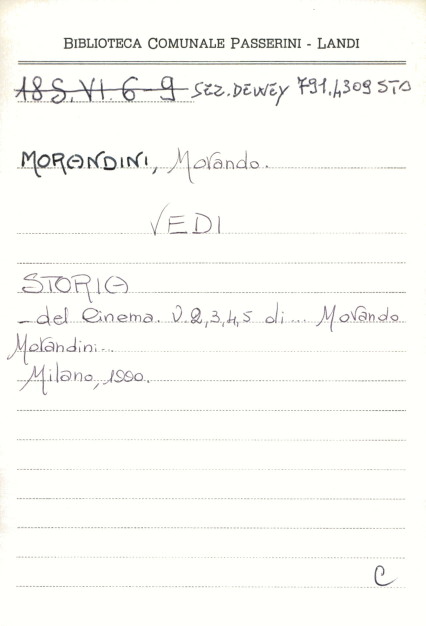 BIBLIOTECA COMUNALE PASSERINI - LANDI
18 S. VI. 6-9 SEZ. DEWEY 791.4309 STO
MORANDINI, Morando.
VEDI
STORIA
- del Cinema. V. 2,3,4,5 di... Morando
Morandini...
Milano, 1990.
C